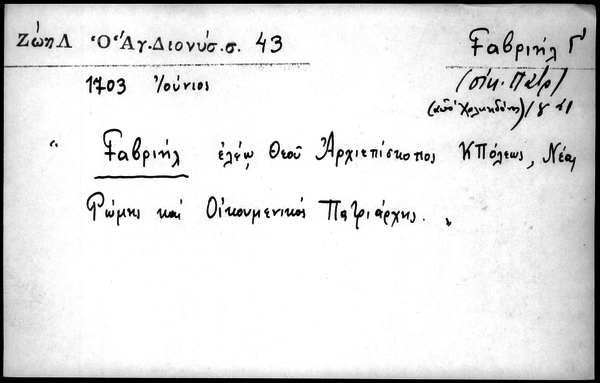 Ζώη Λ Ὁ Ἅγ. Διονύσ. σ. 43
Γαβριήλ Γ'
1703 Ἰούνιος
(οἰκ. Πατρ)
(ἀπό Χαλκηδόνος)
" Γαβριήλ ἐλέῳ Θεοῦ Ἀρχιεπίσκοπος ΚΠόλεως, Νέας
Ῥώμης καί Οἰκουμενικός Πατριάρχης. "